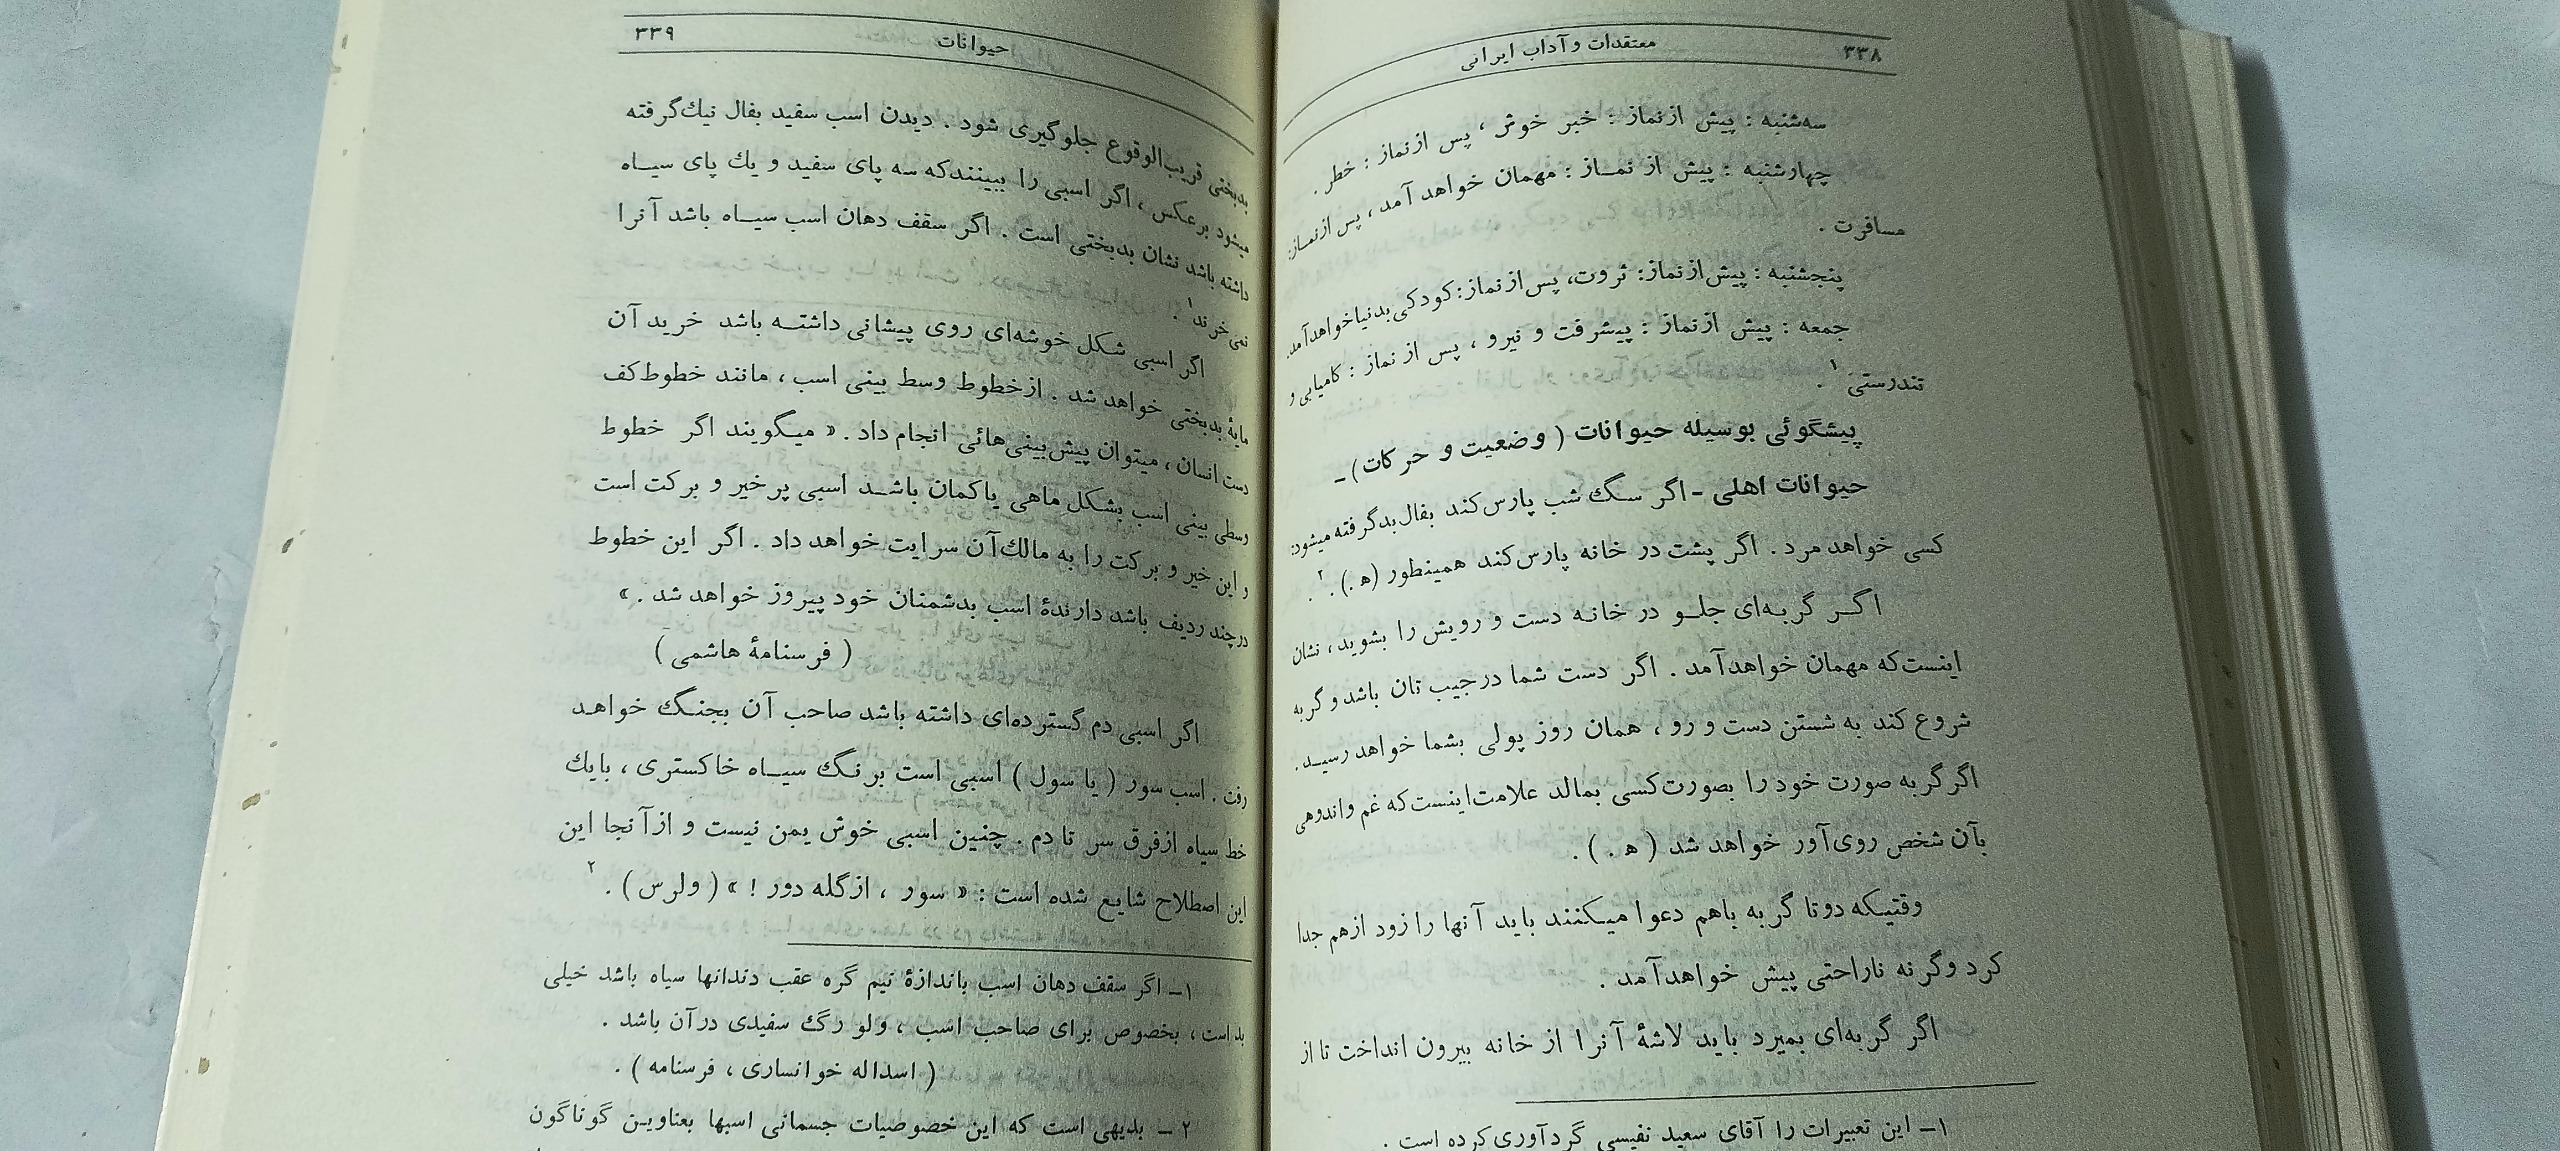 ۳۳۸
معتقدات و آداب ایرانی
سه‌شنبه : پیش از نماز : خبر خوش ، پس از نماز : خطر .
چهارشنبه : پیش از نمـاز : مهمان خواهد آمد ، پس از نماز:
مسافرت .
پنجشنبه : پیش از نماز: ثروت، پس از نماز: کودکی بدنیا خواهد آمد.
جمعه : پیش از نماز : پیشرفت و نیرو ، پس از نماز : کامیابی و
تندرستی ۱ .
پیشگوئی بوسیله حیوانات ( وضعیت و حرکات) ـ
حیوانات اهلی - اگر سگ شب پارس کند بفال بد گرفته میشود:
کسی خواهد مرد . اگر پشت در خانه پارس کند همینطور (ه .) . ۲
اگـر گربه‌ای جلـو در خانه دست و رویش را بشوید ، نشان
اینست که مهمان خواهد آمد . اگر دست شما در جیب تان باشد و گربه
شروع کند به شستن دست و رو ، همان روز پولی بشما خواهد رسید.
اگر گربه صورت خود را بصورت کسی بمالد علامت اینست که غم و اندوهی
بآن شخص روی‌آور خواهد شد ( ه . ) .
وقتیکه دوتا گربه باهم دعوا میکنند باید آنها را زود از هم جدا
کرد وگرنه ناراحتی پیش خواهد آمد .
اگر گربه‌ای بمیرد باید لاشهٔ آنرا از خانه بیرون انداخت تا از
۱ـ این تعبیرات را آقای سعید نفیسی گردآوری کرده است .
حیوانات
۳۳۹
بدبختی قریب‌الوقوع جلوگیری شود . دیدن اسب سفید بفال نیك گرفته
میشود برعکس ، اگر اسبی را ببینند که سه پای سفید و یك پای سیـاه
داشته باشد نشان بدبختی است . اگر سقف دهان اسب سیـاه باشد آنرا
نمی‌خرند ۱ .
اگر اسبی شکل خوشه‌ای روی پیشانی داشتـه باشد خرید آن
مایهٔ بدبختی خواهد شد . از خطوط وسط بینی اسب ، مانند خطوط کف
دست انسان ، میتوان پیش‌بینی‌هائی انجام داد . « میگویند اگر خطوط
وسطی بینی اسب بشکل ماهی یا کمان باشـد اسبی پر خیر و برکت است
و این خیر و برکت را به مالك آن سرایت خواهد داد . اگر این خطوط
در چند ردیف باشد دارندهٔ اسب بدشمنان خود پیروز خواهد شد . »
( فرسنامهٔ هاشمی )
اگر اسبی دم گسترده‌ای داشته باشد صاحب آن بجنگ خواهد
رفت . اسب سور ( یا سول ) اسبی است برنگ سیـاه خاکستری ، بایك
خط سیاه از فرق سر تا دم . چنین اسبی خوش یمن نیست و از آنجا این
این اصطلاح شایع شده است : « سور ، از گله دور ! » ( ولرس ) . ۲
۱ـ اگر سقف دهان اسب باندازهٔ نیم گره عقب دندانها سیاه باشد خیلی
بد است ، بخصوص برای صاحب اسب ، ولو رگ سفیدی در آن باشد .
( اسداله خوانساری ، فرسنامه ) .
۲ ـ بدیهی است که این خصوصیات جسمانی اسبها بعناویـن گوناگون